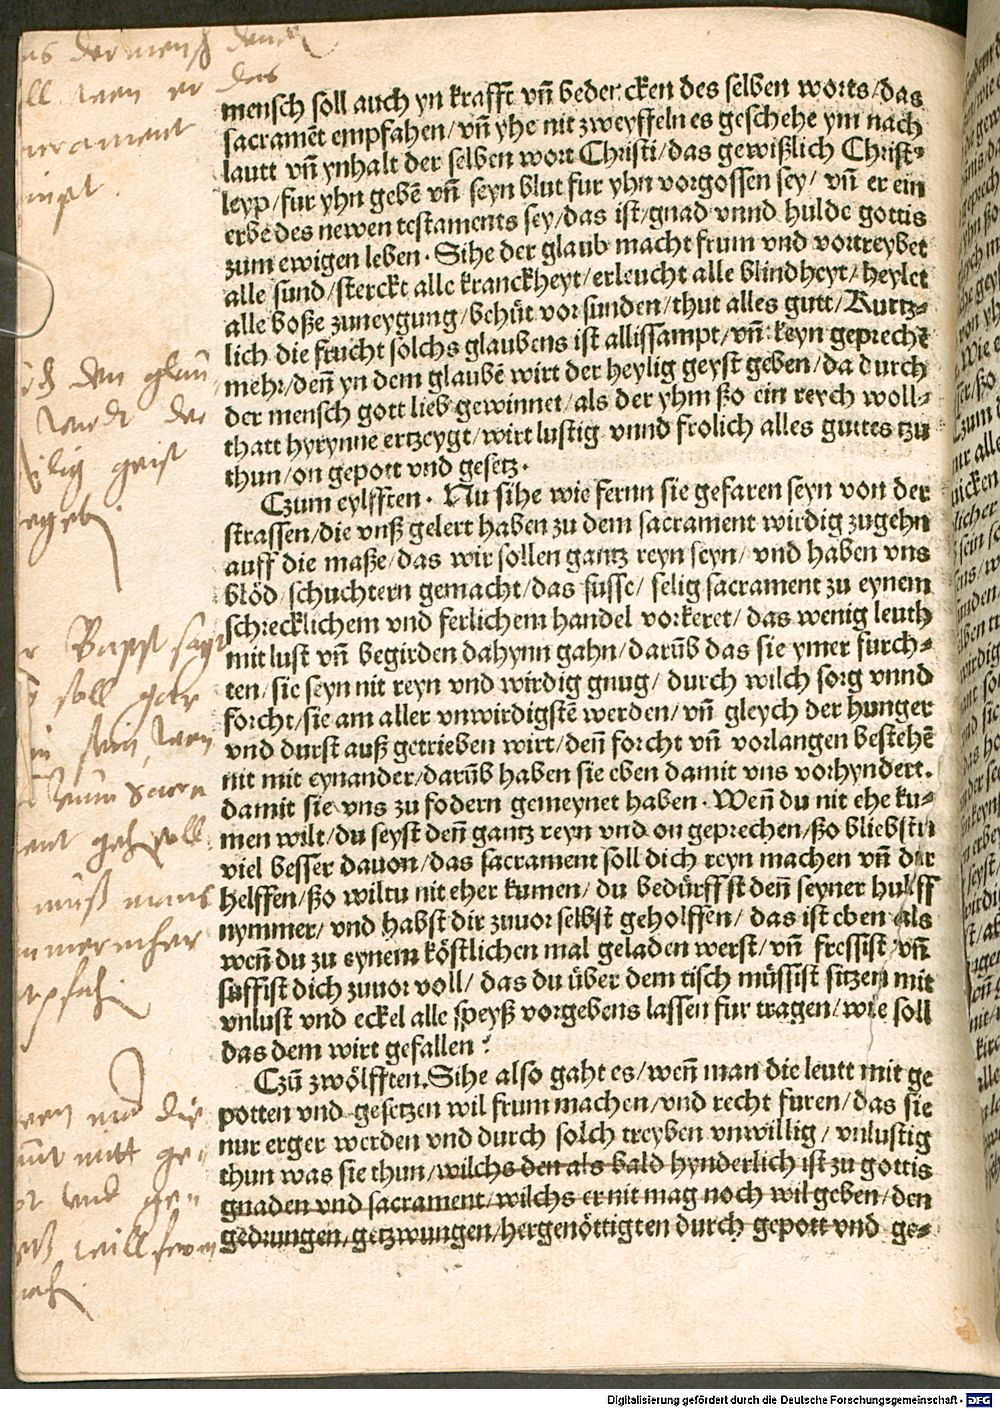 mensch soll auch yn krafft vn̄ bedencken des selben worts/das
sacramēt empfahen/vn̄ yhe nit zweyffeln es geschehe ym nach
lautt vn̄ ynhalt der selben wort Christi/das gewißlich Christ⸗
leyp/fur yhn gebē vn̄ seyn blut fur yhn vorgossen sey/ vn̄ er ein
erbe des newen testaments sey/das ist/gnad vnnd hulde gottis
zum ewigen leben. Sihe der glaub macht frum vnd vortreybet
alle sund/sterckt alle kranckheyt/erleucht alle blindheyt/heylet
alle boße zuneygung/behüt vor sunden/thut alles gutt/Kurtz⸗
lich die frucht solchs glaubens ist allissampt/vn̄ keyn geprechē
mehr/den̄ yn dem glaubē wirt der heylig geyst geben/da durch
der mensch gott lieb gewinnet/als der yhm ßo ein reych woll⸗
thatt hyrynne ertzeygt/wirt lustig vnnd frolich alles guttes tzu
thun/on gepott vnd gesetz.
Czum eylfften. Nu sihe wie fernn sie gefaren seyn von der
strassen/die vnß gelert haben zu dem sacrament wirdig zugehn
auff die maße/das wir sollen gantz reyn seyn/vnd haben vns
blöd/schuchtern gemacht/das susse/ selig sacrament zu eynem
schrecklichem vnd ferlichem handel vorkeret/das wenig leuth
mit lust vn̄ begirden dahynn gahn/darūb das sie ymer furch⸗
ten/sie seyn nit reyn vnd wirdig gnug/ durch wilch sorg vnnd
forcht/sie am aller vnwirdigstē werden/vn̄ gleych der hunger
vnd durst auß getrieben wirt/den̄ forcht vn̄ vorlangen bestehē
nit mit eynander/darūb haben sie eben damit vns vorhyndert.
damit sie vns zu fodern gemeynet haben. Wen̄ du nit ehe ku⸗
men wilt/du seyst den̄ gantz reyn vnd on geprechen/ßo bliebstu
viel besser dauon/das sacrament soll dich reyn machen vn̄ dir
helffen/ßo wiltu nit eher kumen/du bedürffst den̄ seyner hulff
nymmer/vnd habst dir zuuor selbst geholffen/das ist eben als
wen̄ du zu eynem köstlichen mal geladen werst/vn̄ fressist vn̄
suffist dich zuuor voll/das du über dem tisch müssist sitzen mit
vnlust vnd eckel alle speyß vorgebens lassen fur tragen/wie soll
das dem wirt gefallen?
Czū zwölfften. Sihe also gaht es/wen̄ man die leutt mit ge
potten vnd gesetzen wil frum machen/vnd recht furen/das sie
nur erger werden vnd durch solch treyben vnwillig/vnlustig
thun was sie thun/wilchs den als bald hynderlich ist zu gottis
gnaden vnd sacrament/wilchs er nit mag noch wil geben/den
gedrungen/getzwungen/hergenöttigten durch gepott vnd ge⸗
den glau
geist
Bapst sagt
soll
sein, wen
muß
Digitalisierung gefördert durch die Deutsche Forschungsgemeinschaft - DFG